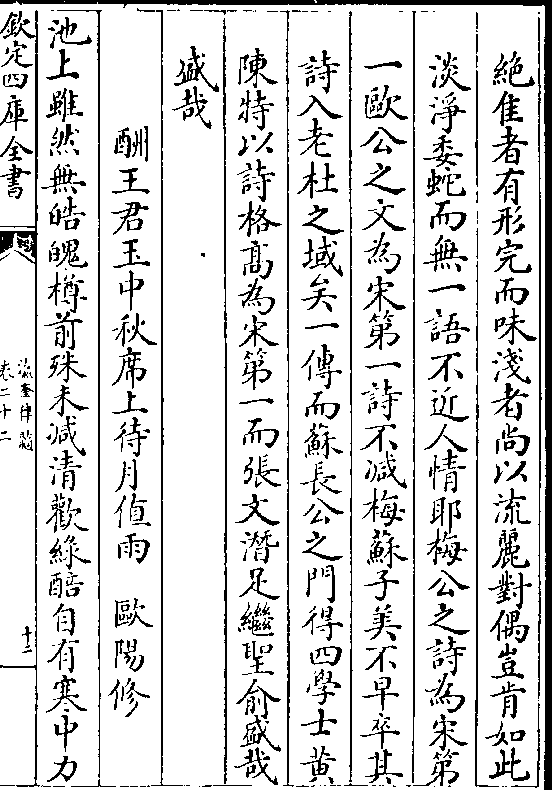 絶佳者有形完而味淺者尚以流麗對偶豈肯如此
淡淨委蛇而無一語不近人情耶梅公之詩為宋第
一歐公之文為宋第一詩不減梅蘇子美不早卒其
詩入老杜之域矣一傳而蘇長公之門得四學士黄
陳特以詩格髙為宋第一而張文潛足繼聖俞盛哉
盛哉
酬王君玉中秋席上待月值雨　歐陽修
池上雖然無皓魄樽前殊未减清歡緑醅自有寒中力
欽定四庫全書
瀛奎律髓
卷二十二
十三